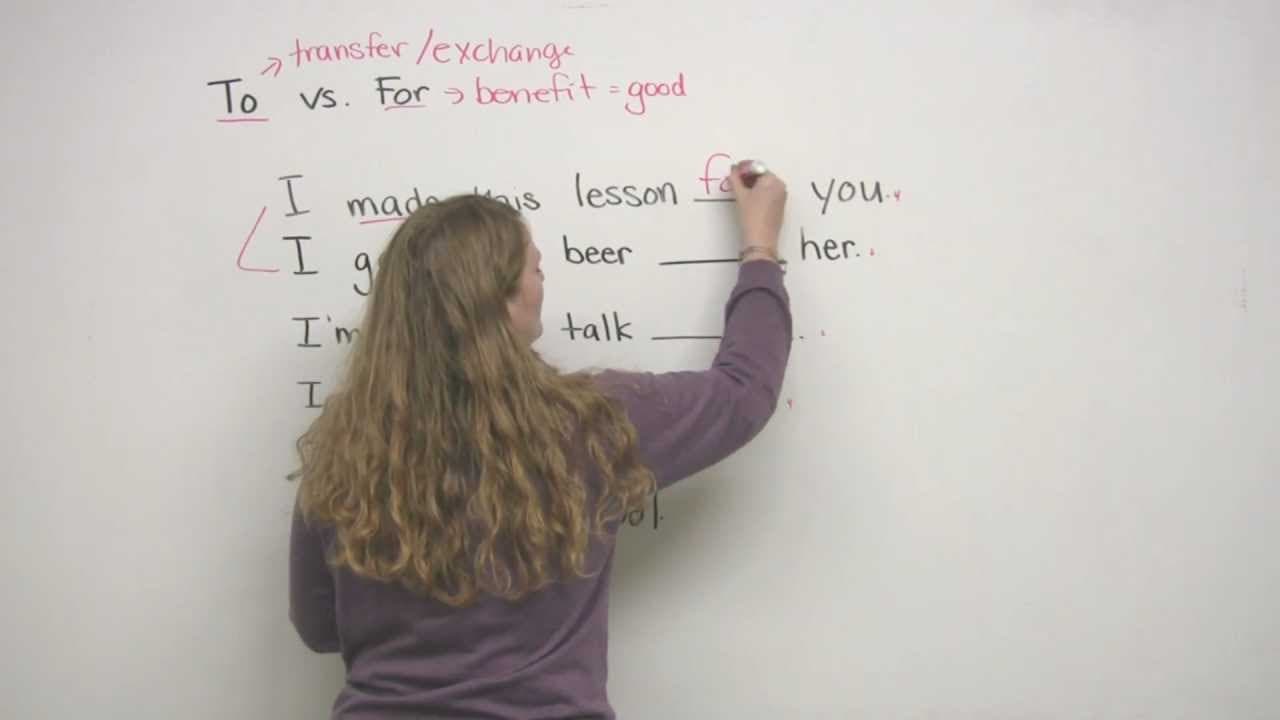 → transfer/exchange
To vs. For → benefit = good
I made this lesson ____ you.
I beer ____ her.
I'm talk ____ .
I